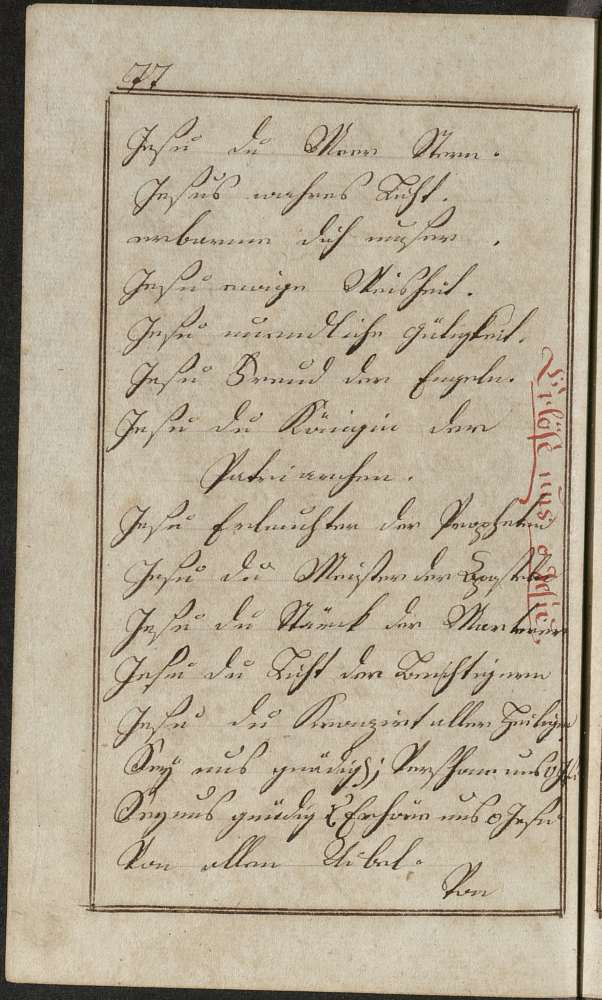 77
Jesu du Meer Stern.
Jesus wahres Licht.
erbarme dich unser.
Jesu ewige Weisheit.
Jesu unendliche gütigkeit.
Jesu Freud der Engeln.
Jesu du Königin der
Patriarchen.
Jesu Erleuchter der Propheten
Jesu du Meister der Apostel
Jesu du Stärck der Marterer
Jesu du Licht der Beichtigeren
Jesu du aller Heiligen
Sey uns gnädig; Verschone uns o
Sey uns gnädig Erhöre uns o Jesu
Von allem Uibel.
Von
Erlöse uns o Jesu.